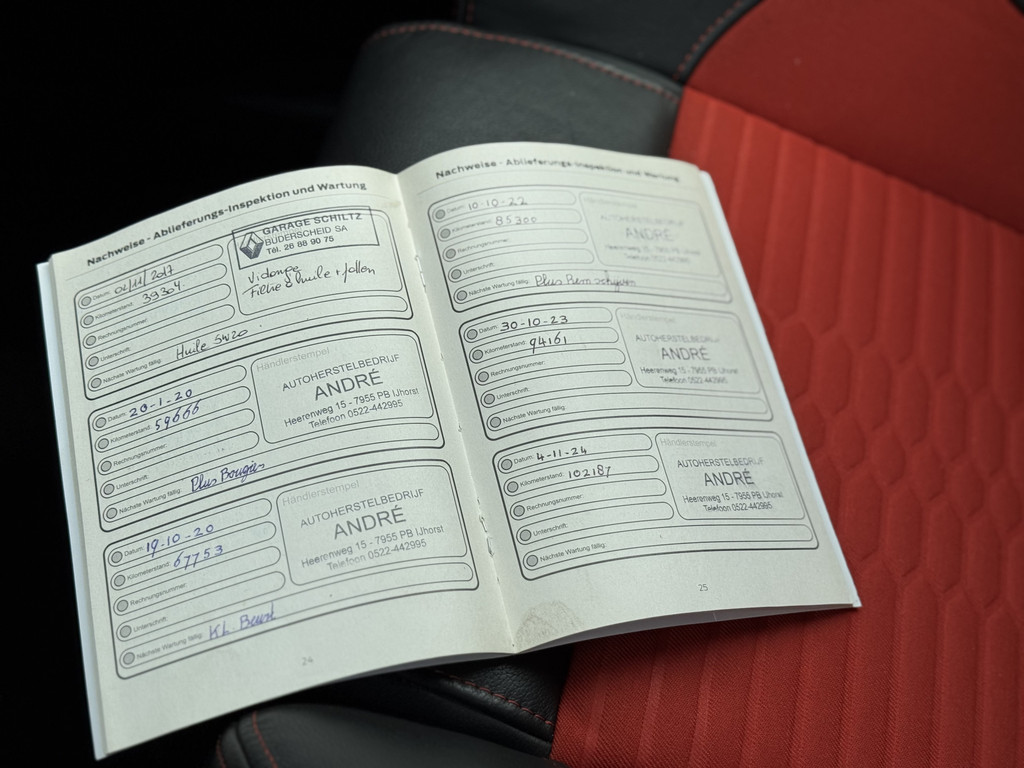 Nachweise - Ablieferungs-Inspektion und Wartung
Datum: 02/11/2017
Kilometerstand: 39304
Rechnungsnummer:
Unterschrift:
Nächste Wartung fällig: Huile 5W20
GARAGE SCHILTZ
BUDERSCHEID SA
Tél. 26 88 90 75
Vidange
Filtre à huile +
Datum: 20-1-20
Kilometerstand: 59666
Rechnungsnummer:
Unterschrift:
Nächste Wartung fällig: Plus Bougies
Händlerstempel
AUTOHERSTELBEDRIJF
ANDRÉ
Heerenweg 15 - 7955 PB IJhorst
Telefoon 0522-442995
Datum: 19-10-20
Kilometerstand: 67753
Rechnungsnummer:
Unterschrift:
Nächste Wartung fällig: Kl. Beurt
Händlerstempel
AUTOHERSTELBEDRIJF
ANDRÉ
Heerenweg 15 - 7955 PB IJhorst
Telefoon 0522-442995
24
Nachweise - Ablieferungs-Inspektion und Wartung
Datum: 10-10-22
Kilometerstand: 85300
Rechnungsnummer:
Unterschrift:
Nächste Wartung fällig: Plus
AUTOHERSTELBEDRIJF
ANDRÉ
Heerenweg 15 - 7955 PB IJhorst
Telefoon 0522-442995
Datum: 30-10-23
Kilometerstand: 94161
Rechnungsnummer:
Unterschrift:
Nächste Wartung fällig:
Händlerstempel
AUTOHERSTELBEDRIJF
ANDRÉ
Heerenweg 15 - 7955 PB IJhorst
Telefoon 0522-442995
Datum: 4-11-24
Kilometerstand: 102187
Rechnungsnummer:
Unterschrift:
Nächste Wartung fällig:
Händlerstempel
AUTOHERSTELBEDRIJF
ANDRÉ
Heerenweg 15 - 7955 PB IJhorst
Telefoon 0522-442995
25